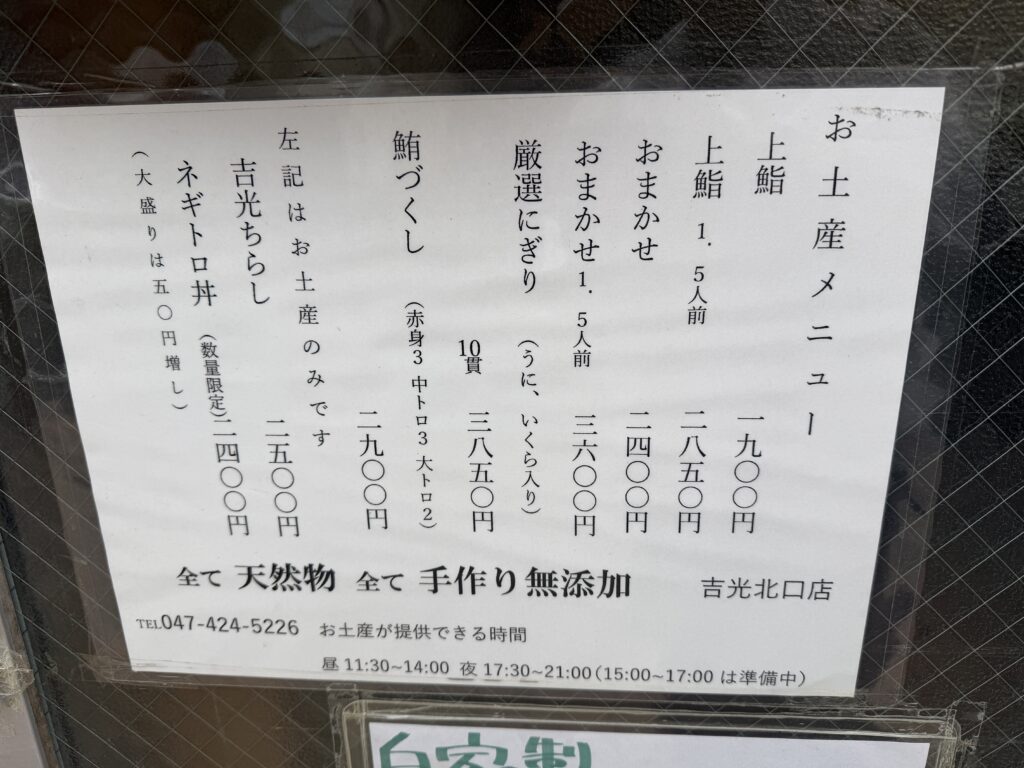 お土産メニュー
上鮨 一九〇〇円
上鮨 1．5人前 二八五〇円
おまかせ 二四〇〇円
おまかせ1．5人前 三六〇〇円
厳選にぎり (うに、いくら入り)
10貫 三八五〇円
鮪づくし (赤身3 中トロ3 大トロ2)
二九〇〇円
左記はお土産のみです
吉光ちらし 二五〇〇円
ネギトロ丼 (数量限定)二四〇〇円
(大盛りは五〇円増し)
全て 天然物 全て 手作り無添加 吉光北口店
TEL047-424-5226 お土産が提供できる時間
昼 11:30~14:00 夜 17:30~21:00(15:00~17:00 は準備中)
自家製